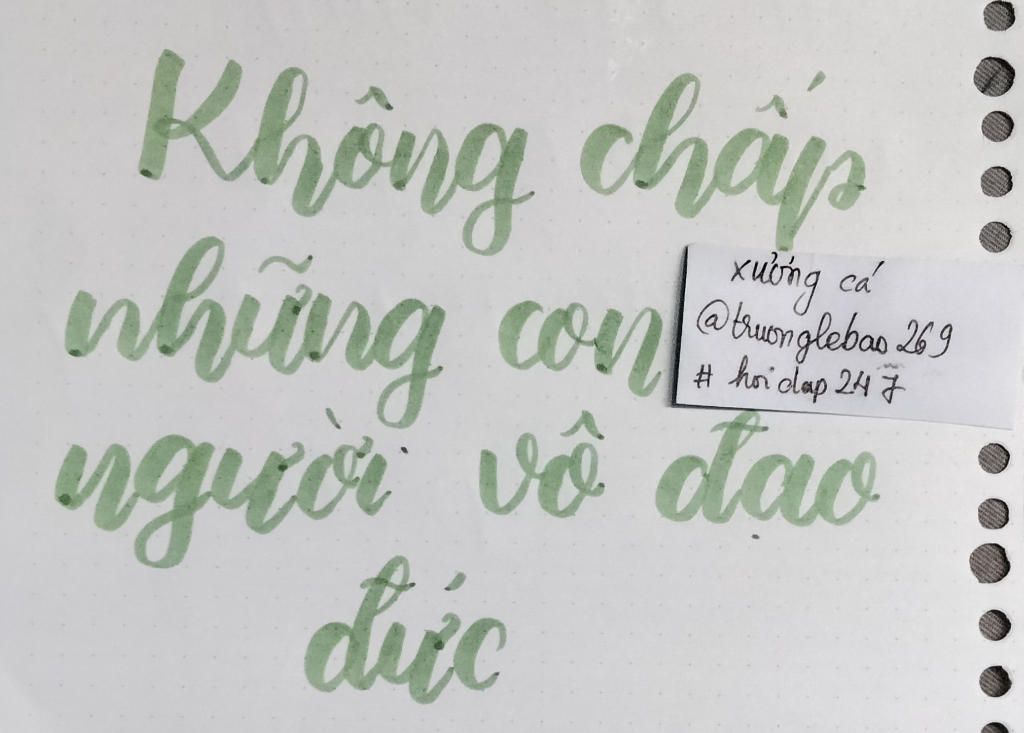 Không chấp
những con
người vô đạo
đức
xưởng cá
@truonglebao269
# hoidap247